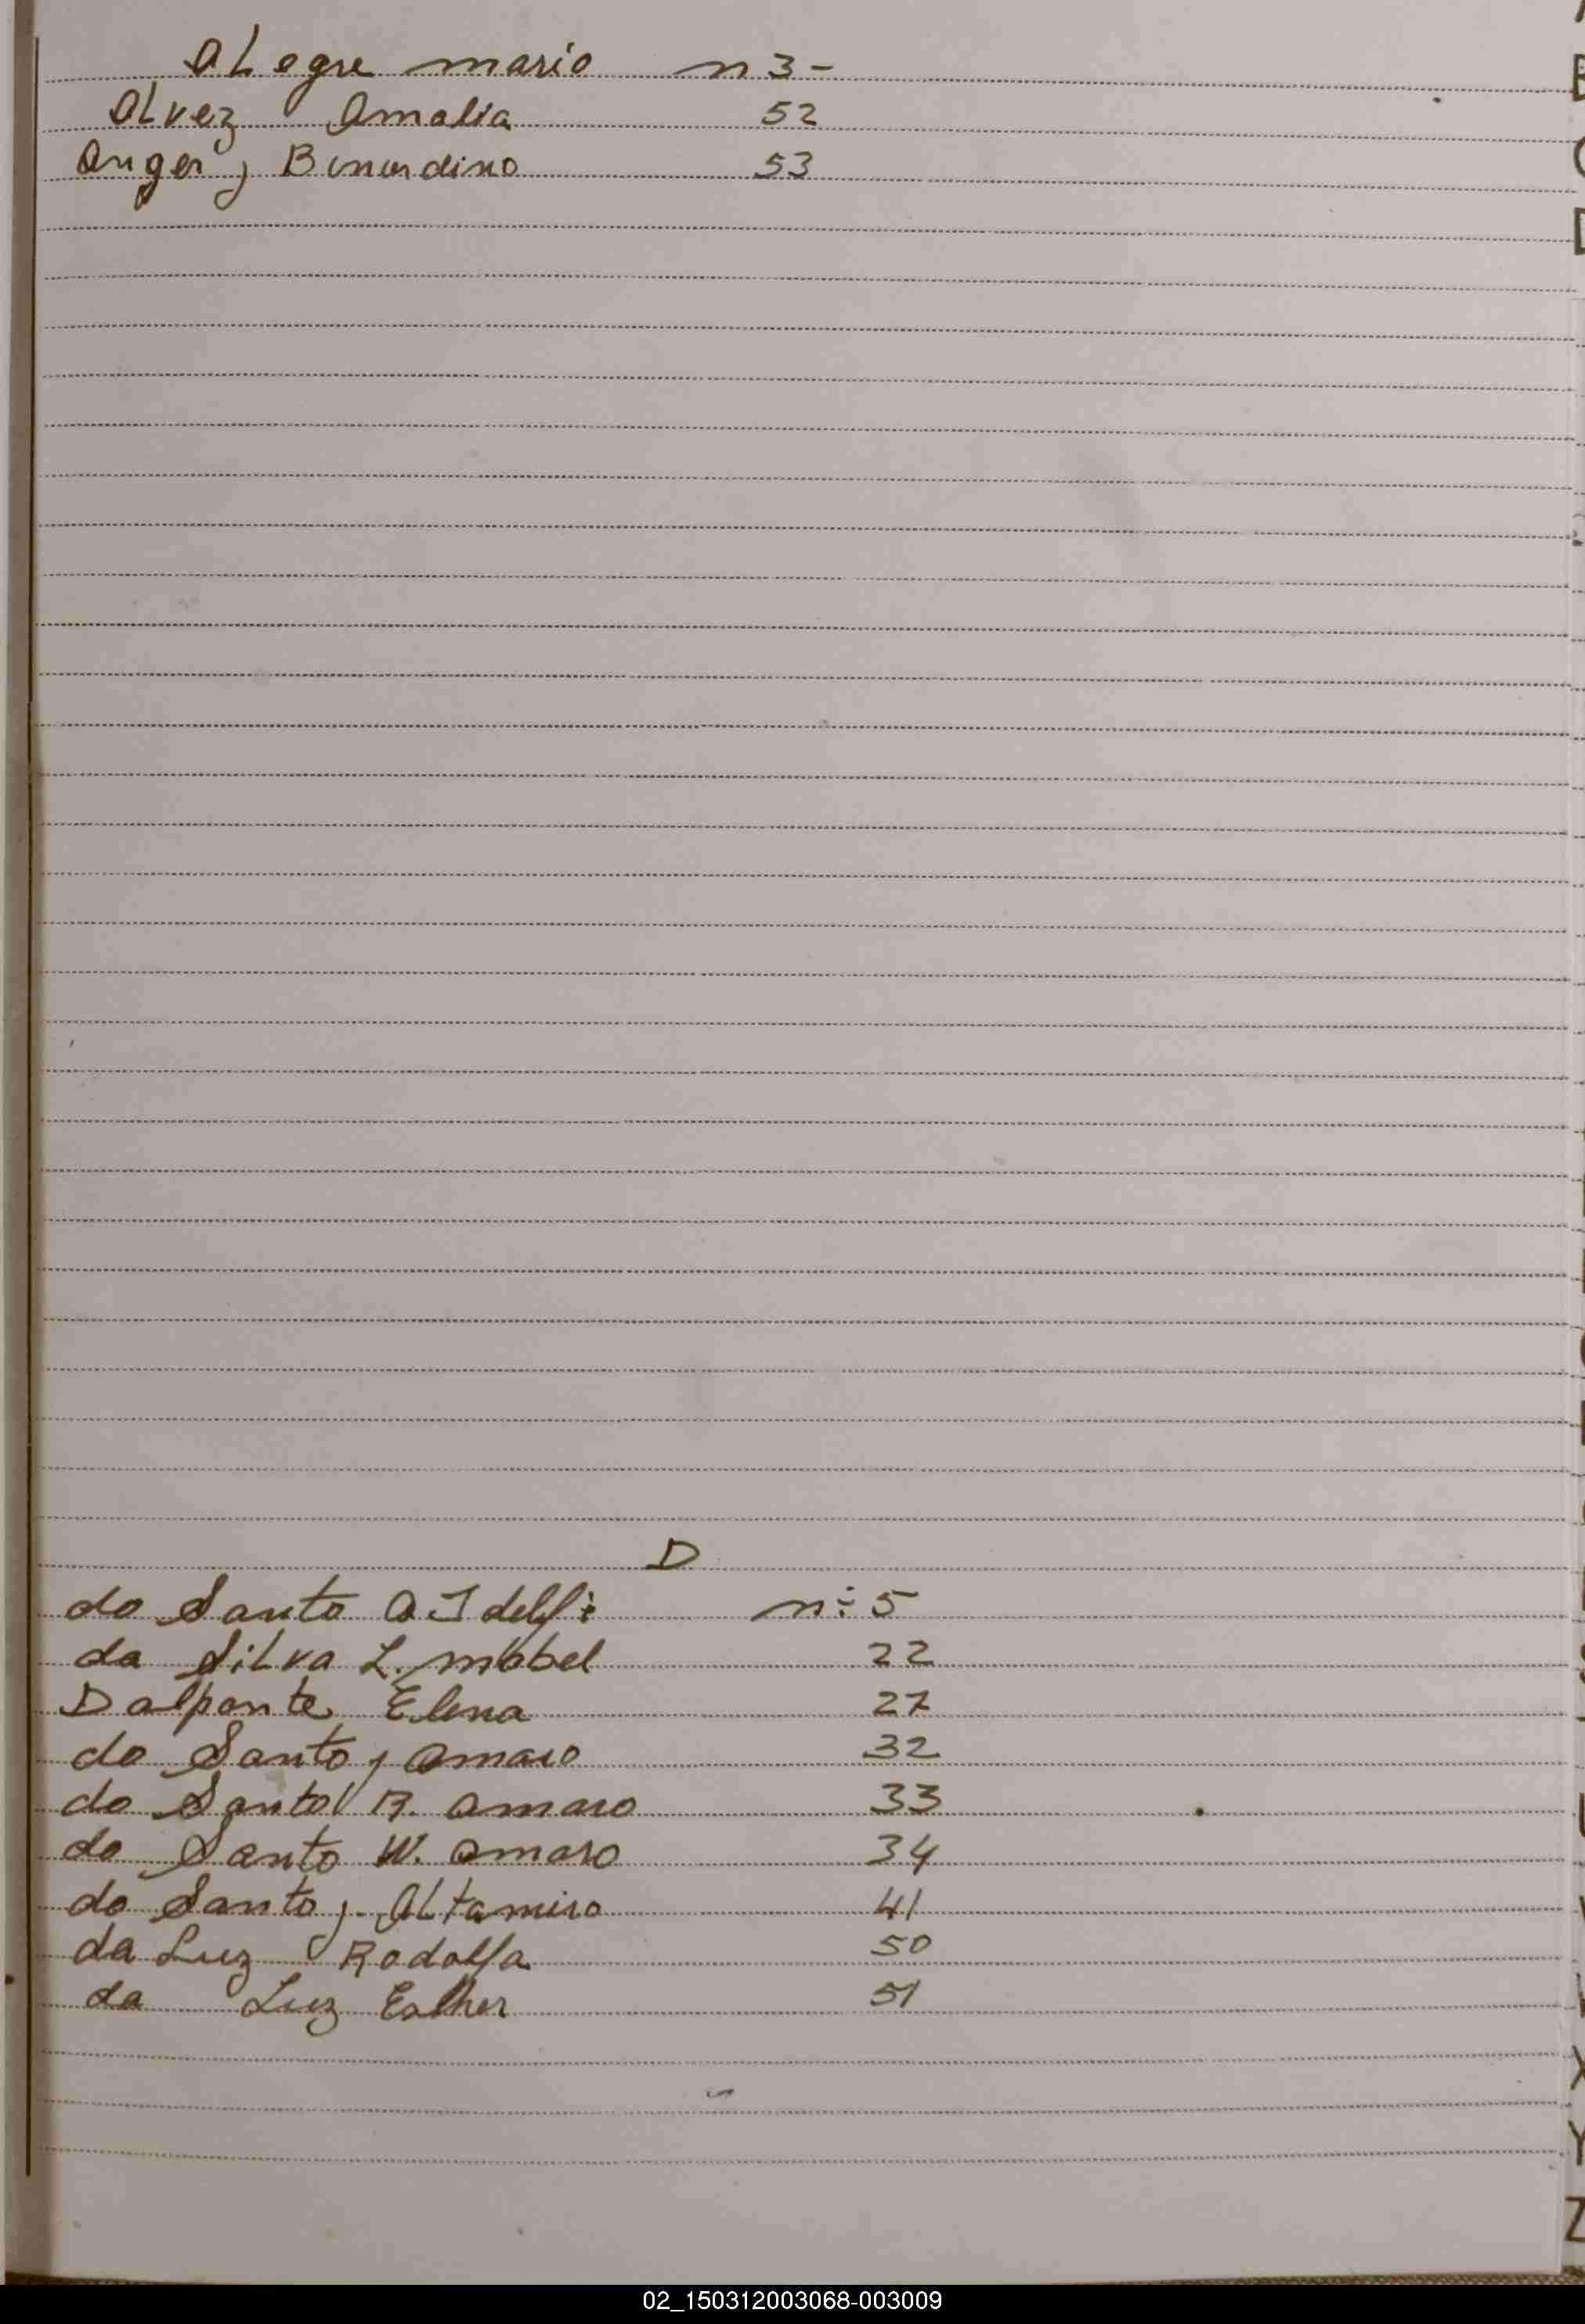 aLegre mario n 3-
aLvez Amalia 52
Anger, Bernardino 53
D
do Santo A Idelfi n: 5
da SiLva L. mabel 22
Dalponte Elena 27
do Santo, amaro 32
do Santo R. amaro 33
do Santo W. amaro 34
do Santo, ALtamiro 41
da Luz Rodolfa 50
da Luz Esther 51
X
Y
Z
02_150312003068-003009